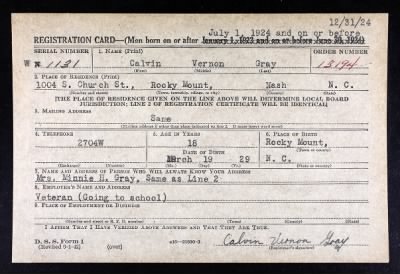 12/31/24
July 1, 1924 and on or before
REGISTRATION CARD—(Men born on or after January 1, 1922 and on or before June 30, 1924)
SERIAL NUMBER 1. NAME (Print) ORDER NUMBER
W N 1131 Calvin Vernon Gray 13194
(First) (Middle) (Last)
2. PLACE OF RESIDENCE (Print)
1004 S. Church St., Rocky Mount, Nash N. C.
(Number and street) (Town, township, village, or city) (County) (State)
[THE PLACE OF RESIDENCE GIVEN ON THE LINE ABOVE WILL DETERMINE LOCAL BOARD
JURISDICTION; LINE 2 OF REGISTRATION CERTIFICATE WILL BE IDENTICAL]
3. MAILING ADDRESS
Same
[Mailing address if other than place indicated on line 2. If same insert word same]
4. TELEPHONE 5. AGE IN YEARS 6. PLACE OF BIRTH
2704W 18 Rocky Mount,
DATE OF BIRTH (Town or county)
March 19 29 N. C.
(Mo.) (Day) (Yr.) (State or country)
7. NAME AND ADDRESS OF PERSON WHO WILL ALWAYS KNOW YOUR ADDRESS
Mrs. Minnie H. Gray, Same as Line 2
8. EMPLOYER'S NAME AND ADDRESS
Veteran (Going to school)
9. PLACE OF EMPLOYMENT OR BUSINESS
(Number and street or R. F. D. number) (Town) (County) (State)
I AFFIRM THAT I HAVE VERIFIED ABOVE ANSWERS AND THAT THEY ARE TRUE.
D. S. S. Form 1
(over) Calvin Vernon Gray
(Registrant's signature)